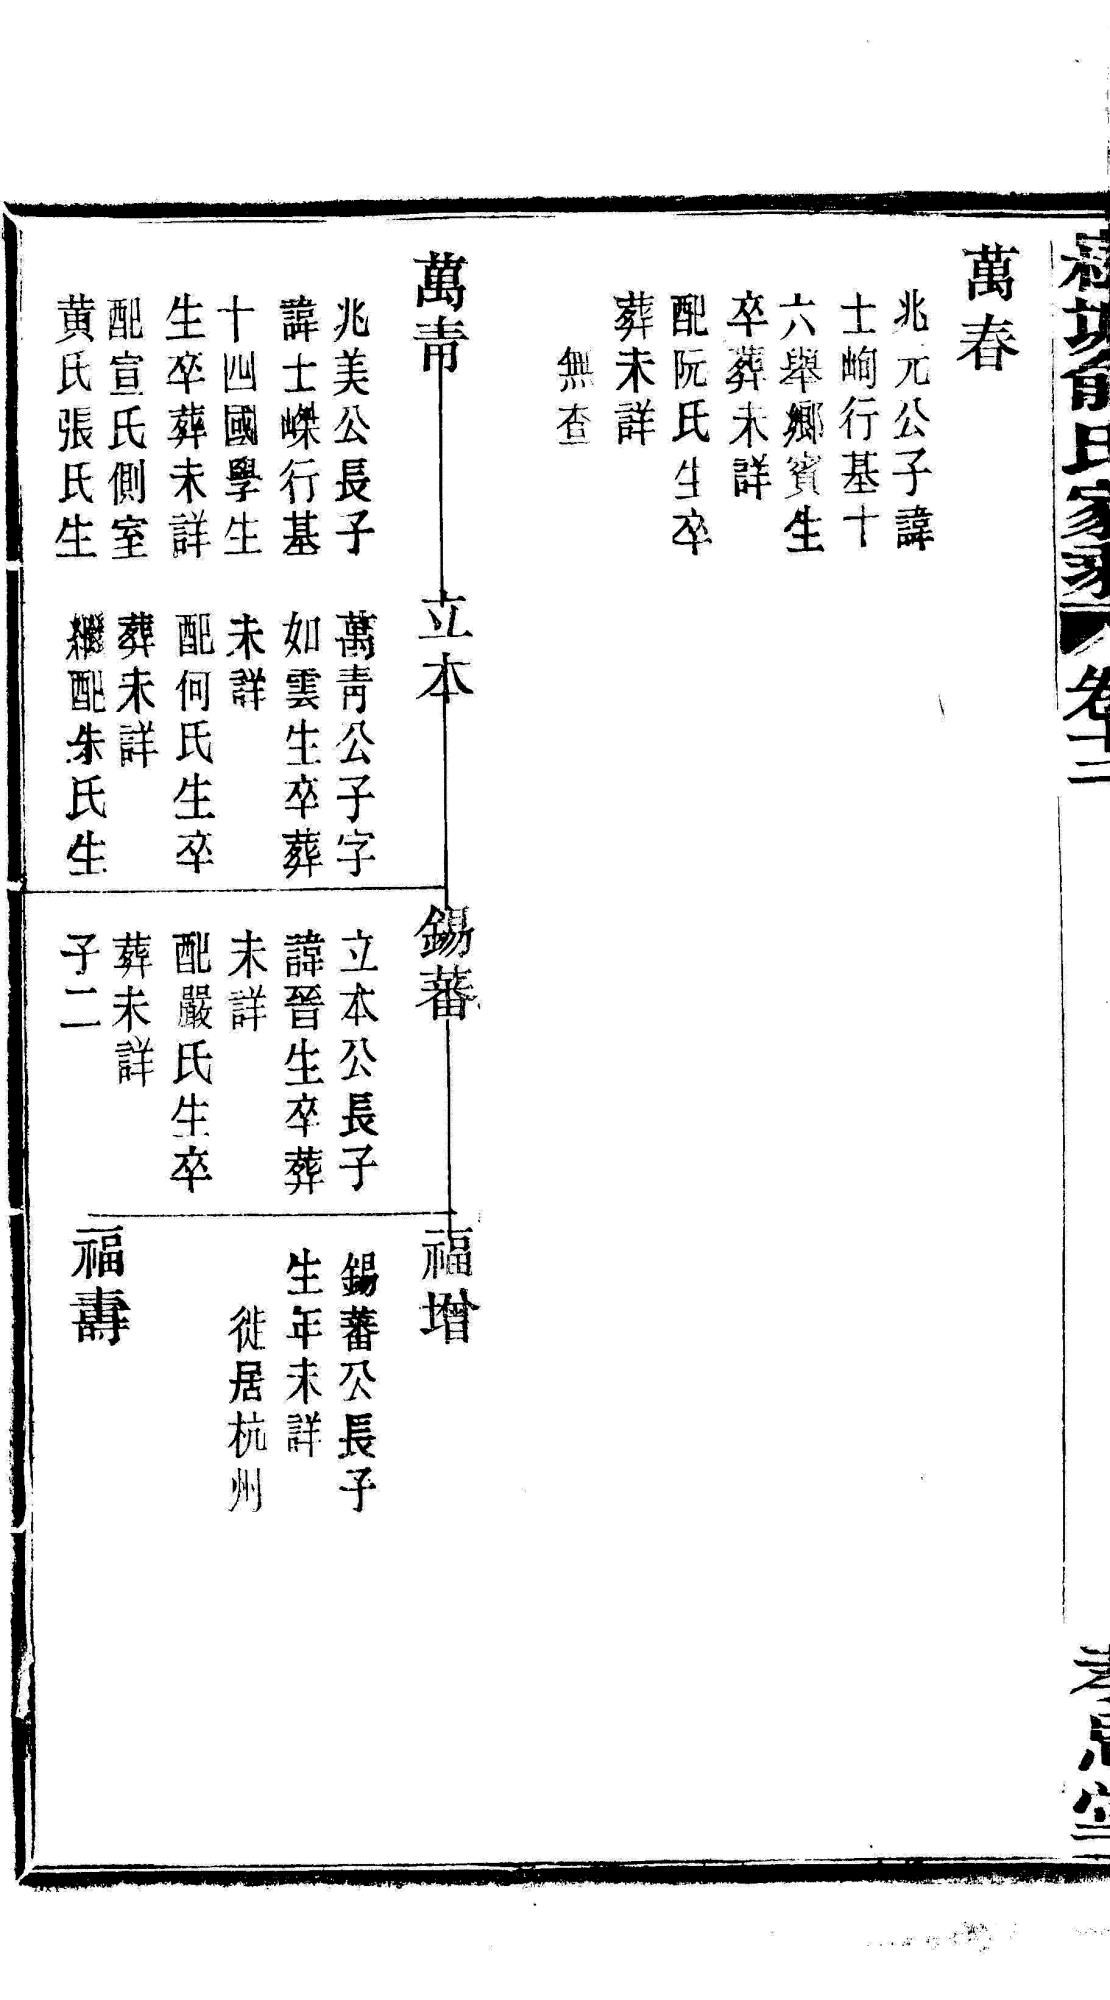 俞氏家乘
卷十二
孝思堂
萬春
兆元公子諱
士峋行基十
六舉鄉賓生
卒葬未詳
配阮氏生卒
葬未詳
無查
萬青
兆美公長子
諱士嶸行基
十四國學生
生卒葬未詳
配宣氏側室
黃氏張氏生
立本
萬青公子字
如雲生卒葬
未詳
配何氏生卒
葬未詳
繼配朱氏生
錫蕃
立本公長子
諱晉生卒葬
未詳
配嚴氏生卒
葬未詳
子二
福增
錫蕃公長子
生年未詳
徙居杭州
福壽